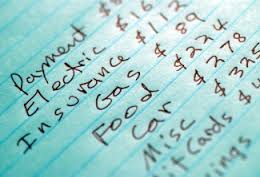 Payment $
Electric $16
Insurance $112
Gas $ 89
Food $224
Car $278
Misc $325
it Cards $
ings